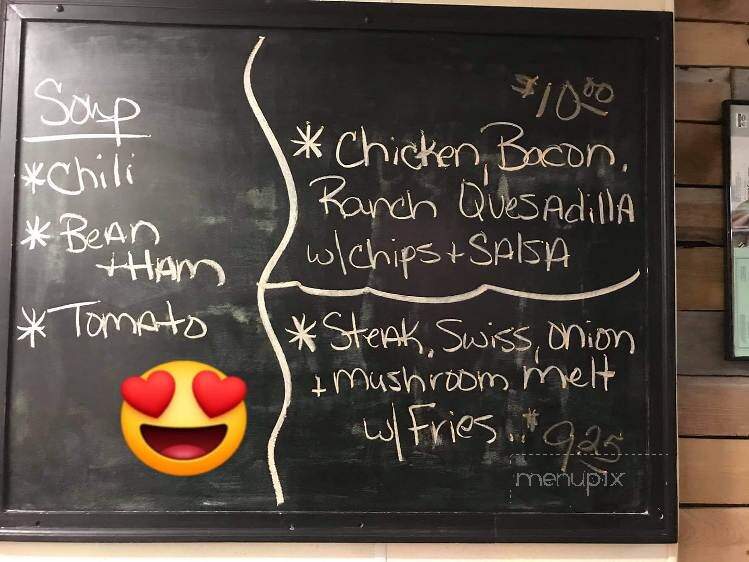 Soup
* Chili
* Bean
+ Ham
* Tomato
$10.00
* Chicken, Bacon,
Ranch Quesadilla
w/chips + Salsa
* Steak, Swiss, onion
+ mushroom melt
w/ Fries .. $9.25
menupix